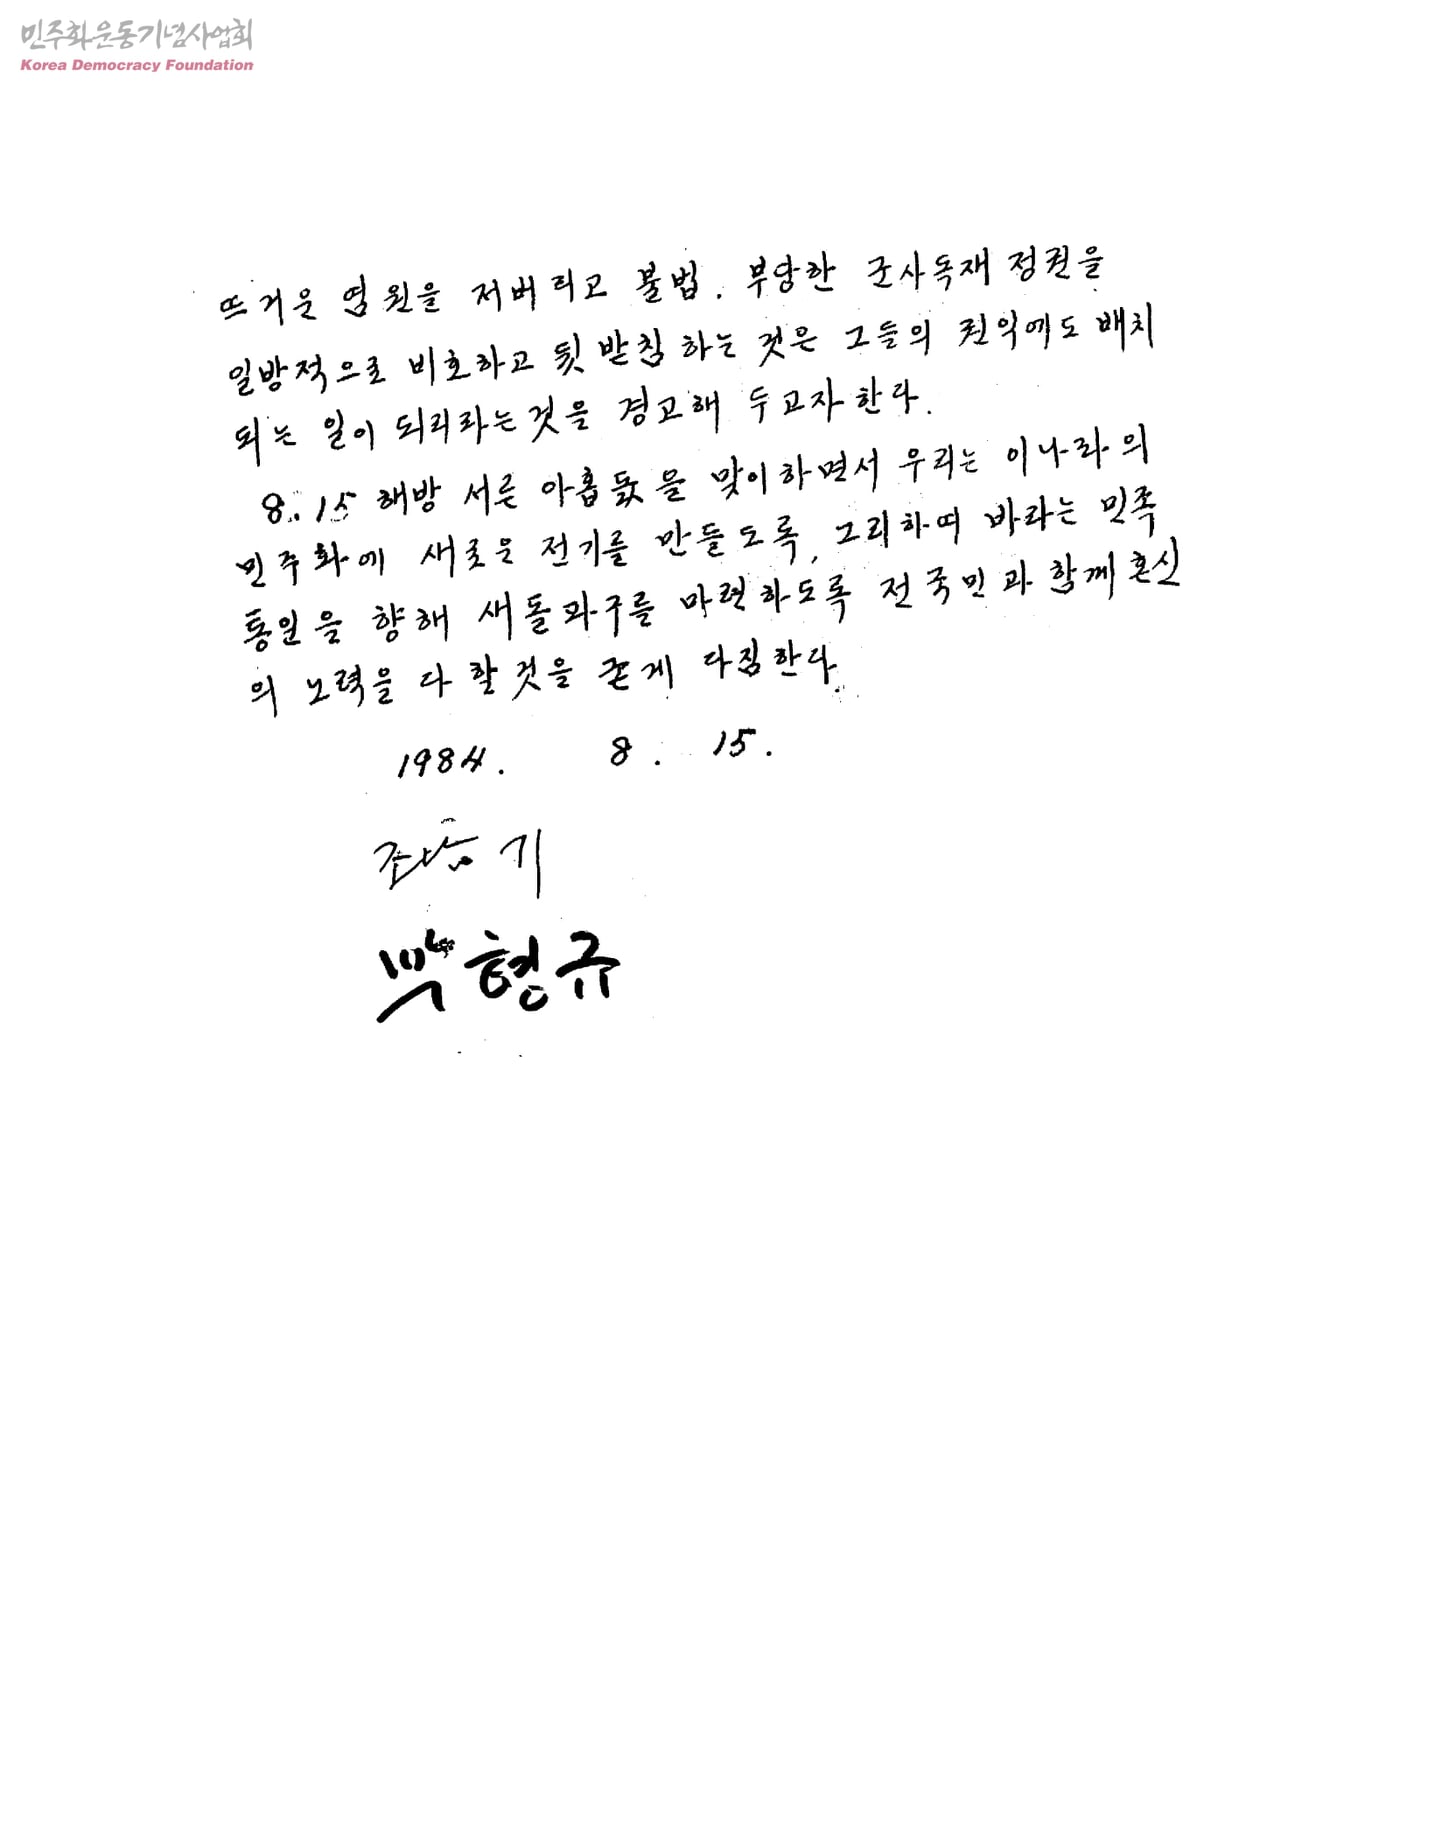 민주화운동기념사업회
Korea Democracy Foundation
뜨거운 염원을 저버리고 불법. 부당한 군사독재 정권을
일방적으로 비호하고 뒷받침 하는 것은 그들의 권익에도 배치
되는 일이 되리라는것을 경고해 두고자한다.
8.15 해방 서른 아홉돐을 맞이하면서 우리는 이나라의
민주화에 새로운 전기를 만들도록, 그리하여 바라는 민족
통일을 향해 새돌파구를 마련하도록 전국민과 함께 혼신
의 노력을 다 할것을 굳게 다짐한다.
1984. 8. 15.
박형규